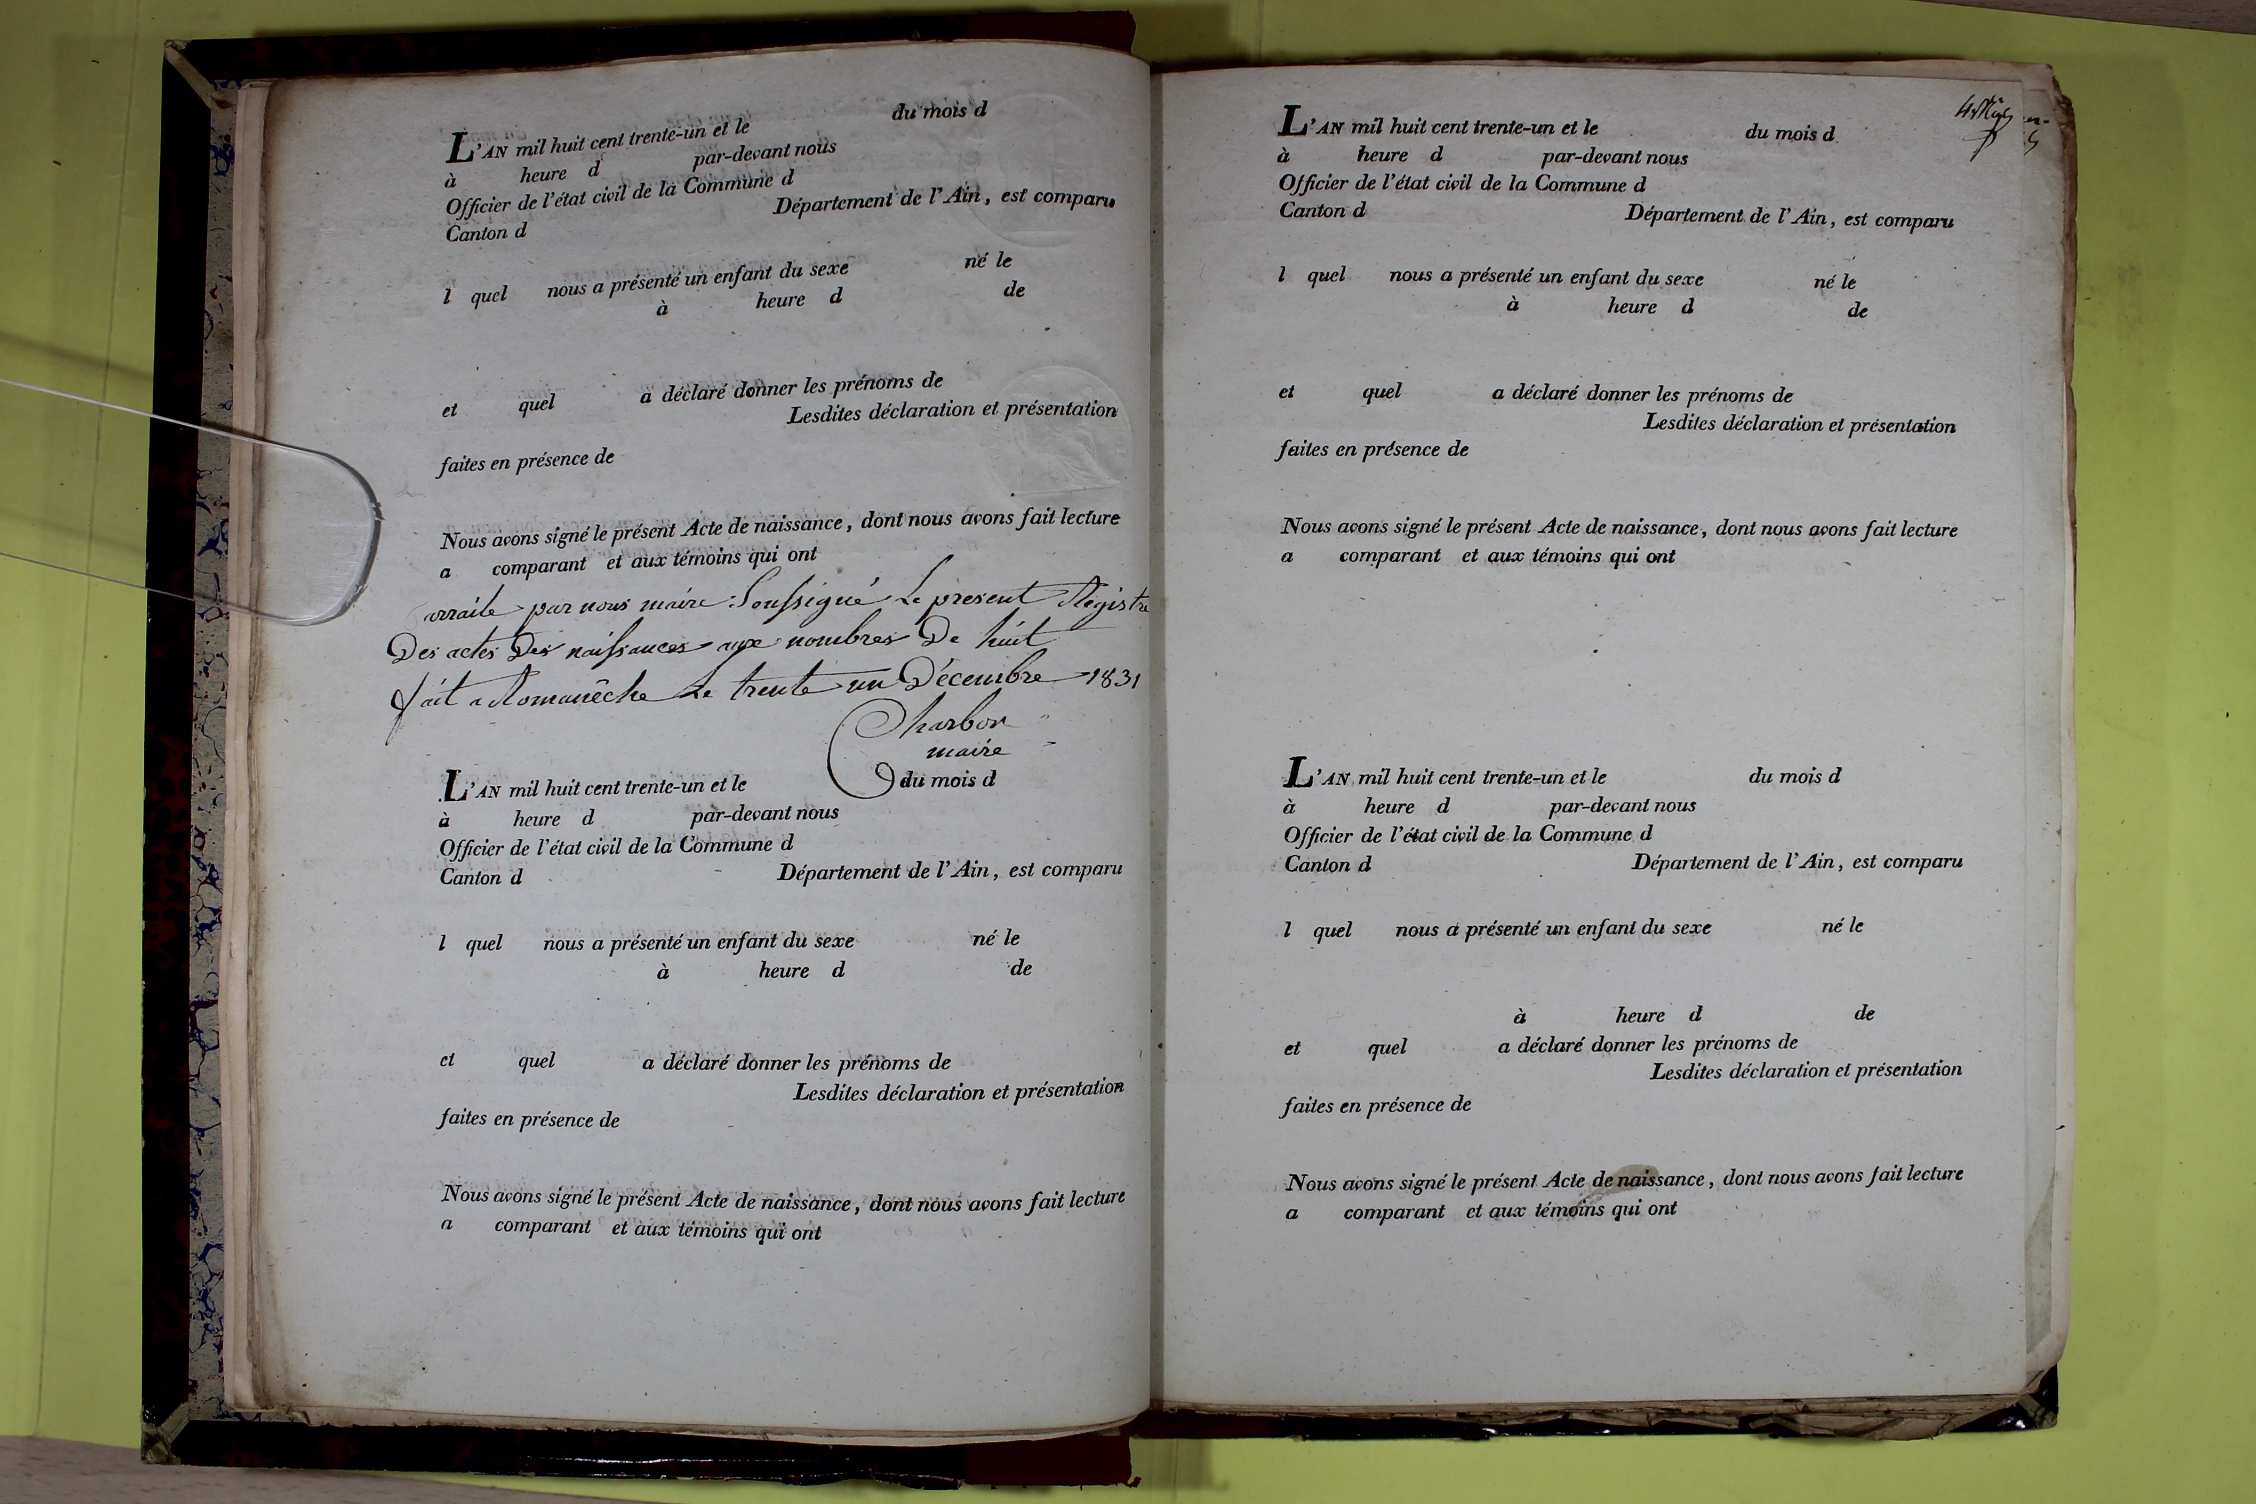 L'AN mil huit cent trente-un et le du mois d
à heure d par-devant nous
Officier de l'état civil de la Commune d
Canton d Département de l'Ain, est comparu
l quel nous a présenté un enfant du sexe né le
à heure d de
et quel a déclaré donner les prénoms de
Lesdites déclaration et présentation
faites en présence de
Nous avons signé le présent Acte de naissance, dont nous avons fait lecture
a comparant et aux témoins qui ont
par nous maire Soussigné Le present Régistre
Des actes Des naissances aux nombres De huit
fait a Romanêche Le trente un Décembre 1831
Charbon
maire
L'AN mil huit cent trente-un et le du mois d
à heure d par-devant nous
Officier de l'état civil de la Commune d
Canton d Département de l'Ain, est comparu
l quel nous a présenté un enfant du sexe né le
à heure d de
et quel a déclaré donner les prénoms de
Lesdites déclaration et présentation
faites en présence de
Nous avons signé le présent Acte de naissance, dont nous avons fait lecture
a comparant et aux témoins qui ont
L'AN mil huit cent trente-un et le du mois d
à heure d par-devant nous
Officier de l'état civil de la Commune d
Canton d Département de l'Ain, est comparu
l quel nous a présenté un enfant du sexe né le
à heure d de
et quel a déclaré donner les prénoms de
Lesdites déclaration et présentation
faites en présence de
Nous avons signé le présent Acte de naissance, dont nous avons fait lecture
a comparant et aux témoins qui ont
L'AN mil huit cent trente-un et le du mois d
à heure d par-devant nous
Officier de l'état civil de la Commune d
Canton d Département de l'Ain, est comparu
l quel nous a présenté un enfant du sexe né le
à heure d de
et quel a déclaré donner les prénoms de
Lesdites déclaration et présentation
faites en présence de
Nous avons signé le présent Acte de naissance, dont nous avons fait lecture
a comparant et aux témoins qui ont